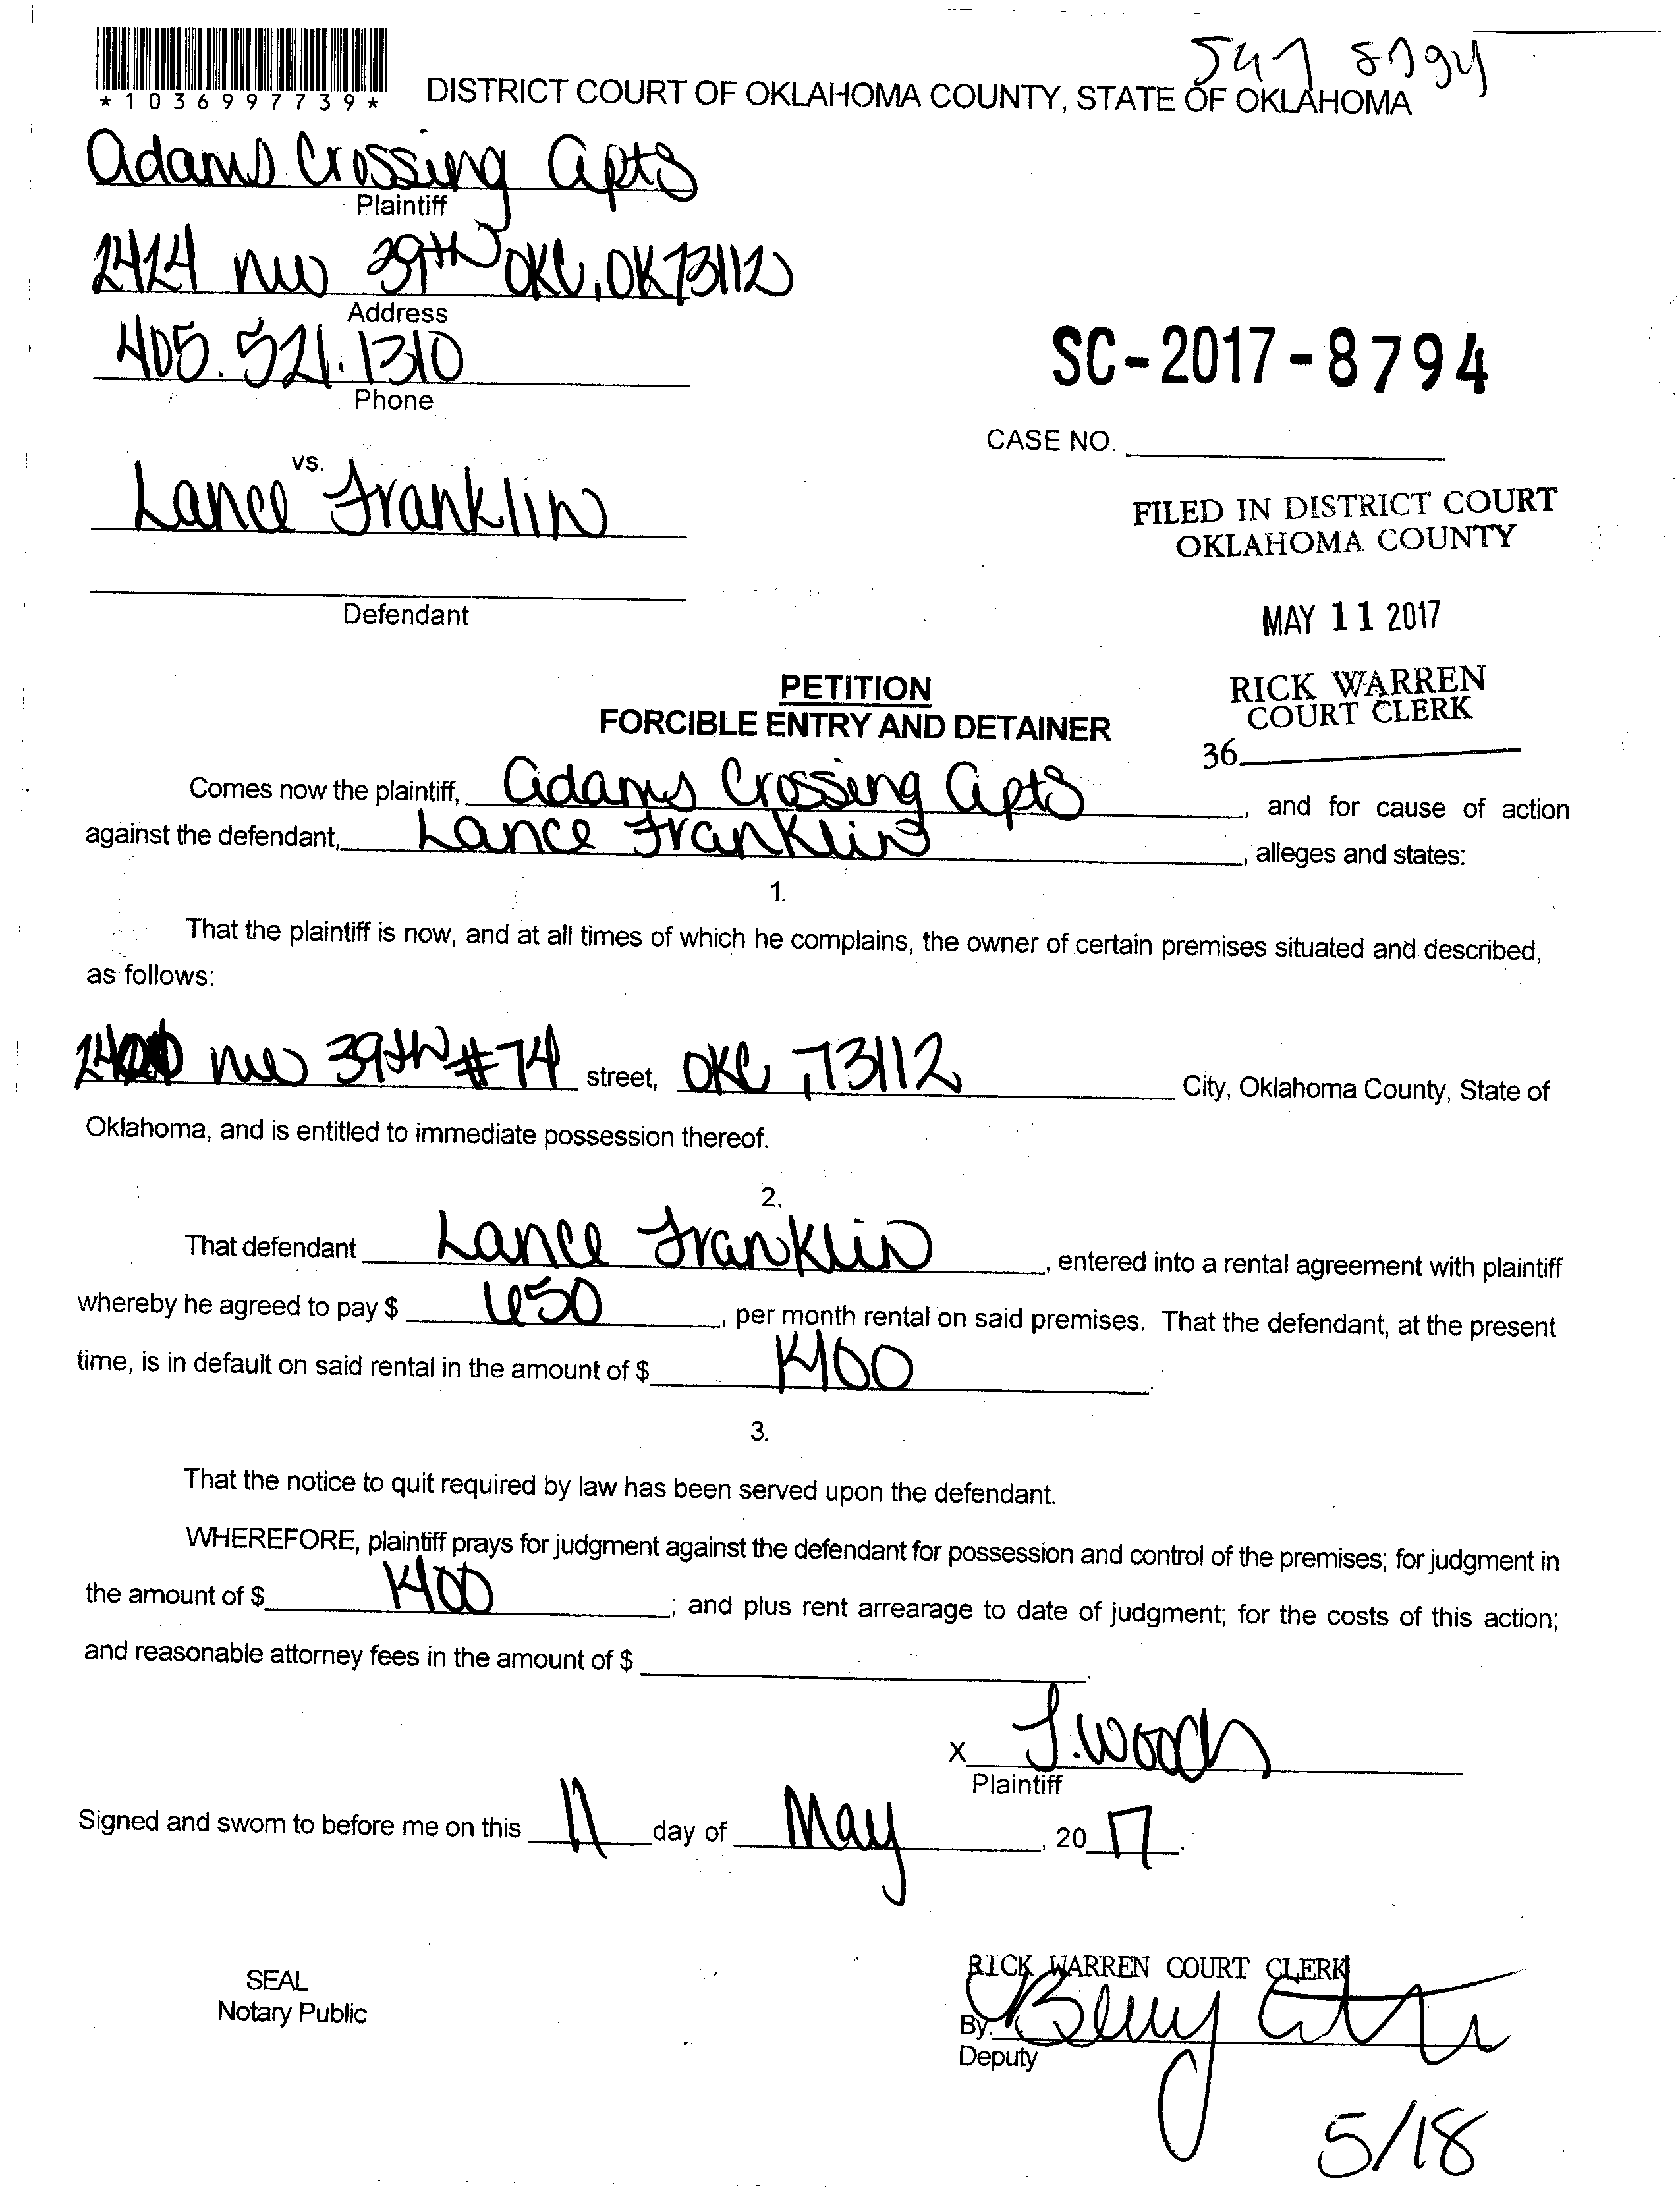 *1036997739*
DISTRICT COURT OF OKLAHOMA COUNTY, STATE OF OKLAHOMA
Adams Crossing Apts
Plaintiff
2424 NW 39th OKC, OK 73112
Address
405.521.1310
Phone
SC-2017-8794
CASE NO.
vs.
Lance Franklin
Defendant
FILED IN DISTRICT COURT
OKLAHOMA COUNTY
MAY 11 2017
RICK WARREN
COURT CLERK
36
PETITION
FORCIBLE ENTRY AND DETAINER
Comes now the plaintiff, Adams Crossing Apts, and for cause of action
against the defendant, Lance Franklin, alleges and states:
1.
That the plaintiff is now, and at all times of which he complains, the owner of certain premises situated and described,
as follows:
NW 39th #74 street, OKC, 73112 City, Oklahoma County, State of
Oklahoma, and is entitled to immediate possession thereof.
2.
That defendant Lance Franklin, entered into a rental agreement with plaintiff
whereby he agreed to pay $ 650, per month rental on said premises. That the defendant, at the present
time, is in default on said rental in the amount of $ 1400.
3.
That the notice to quit required by law has been served upon the defendant.
WHEREFORE, plaintiff prays for judgment against the defendant for possession and control of the premises; for judgment in
the amount of $ 1400; and plus rent arrearage to date of judgment; for the costs of this action;
and reasonable attorney fees in the amount of $ .
x
Plaintiff
Signed and sworn to before me on this 11 day of May, 2017.
SEAL
Notary Public
RICK WARREN COURT CLERK
By:
Deputy
5/18